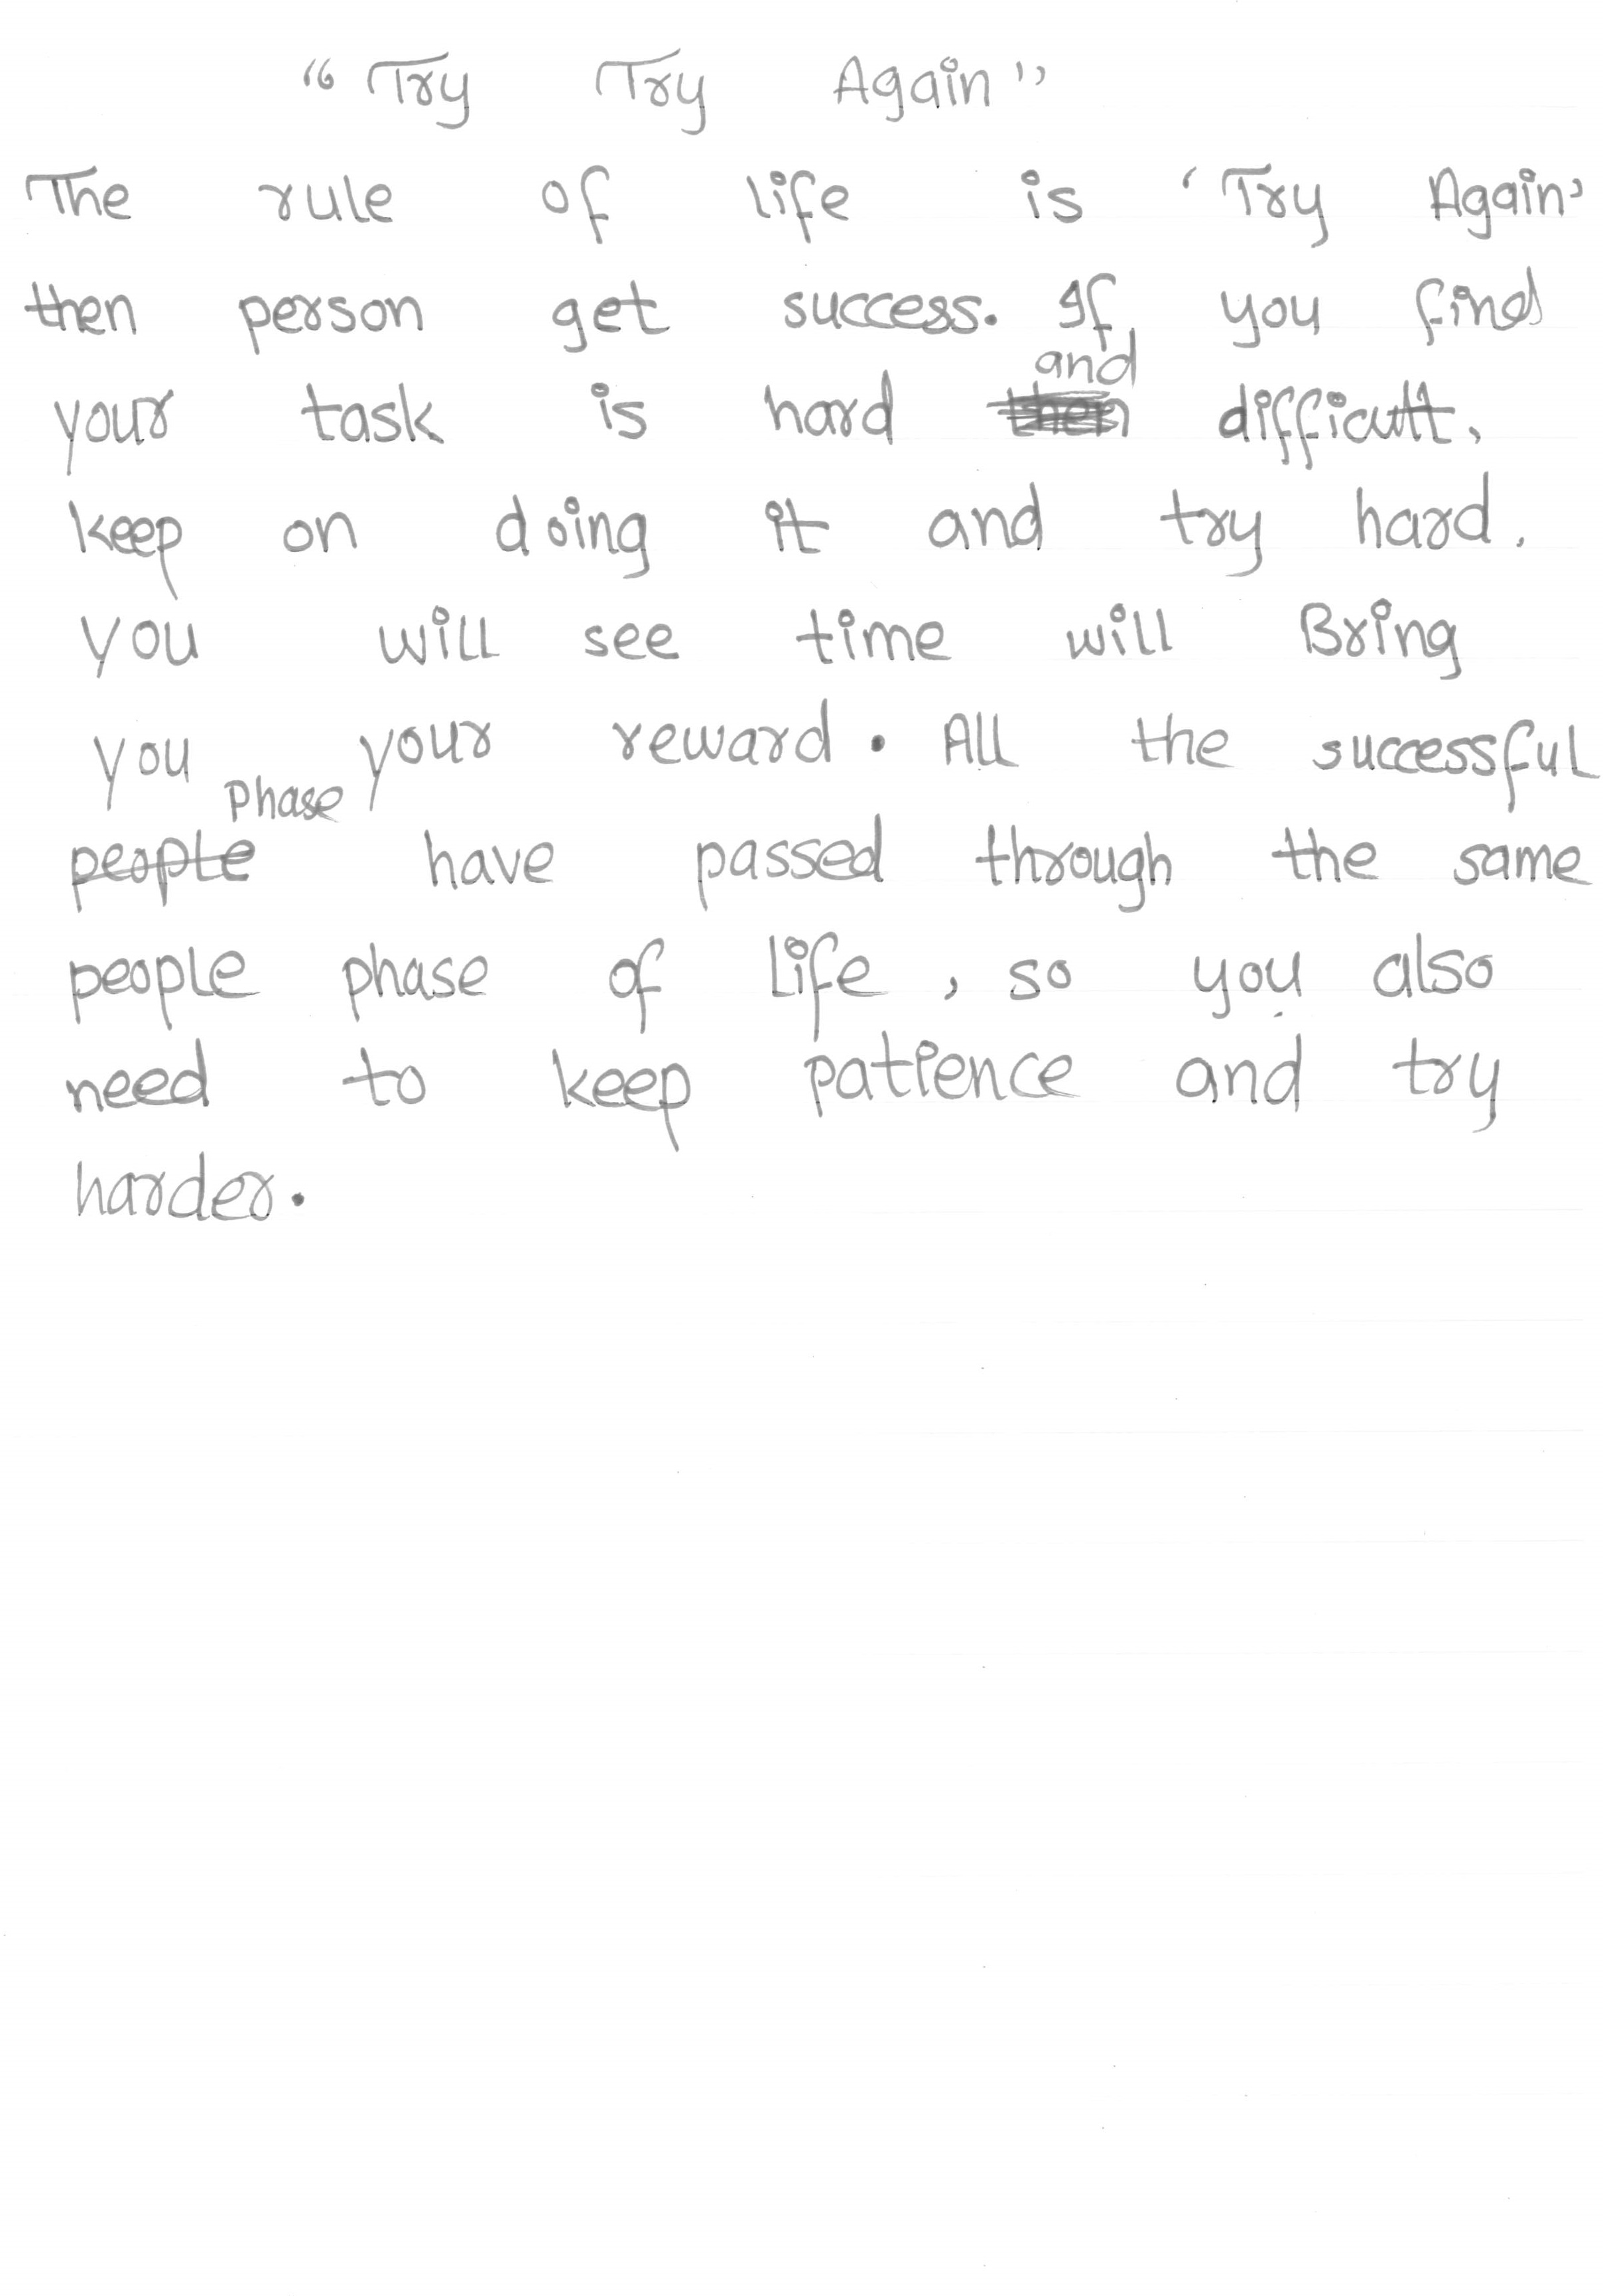 “Try Try Again”
The rule of life is ‘Try Again’
then person get success. If you find
your task is hard and difficult,
keep on doing it and try hard.
you will see time will Bring
you your reward. All the successful
phase have passed through the same
people phase of life, so you also
need to keep patience and try
harder.